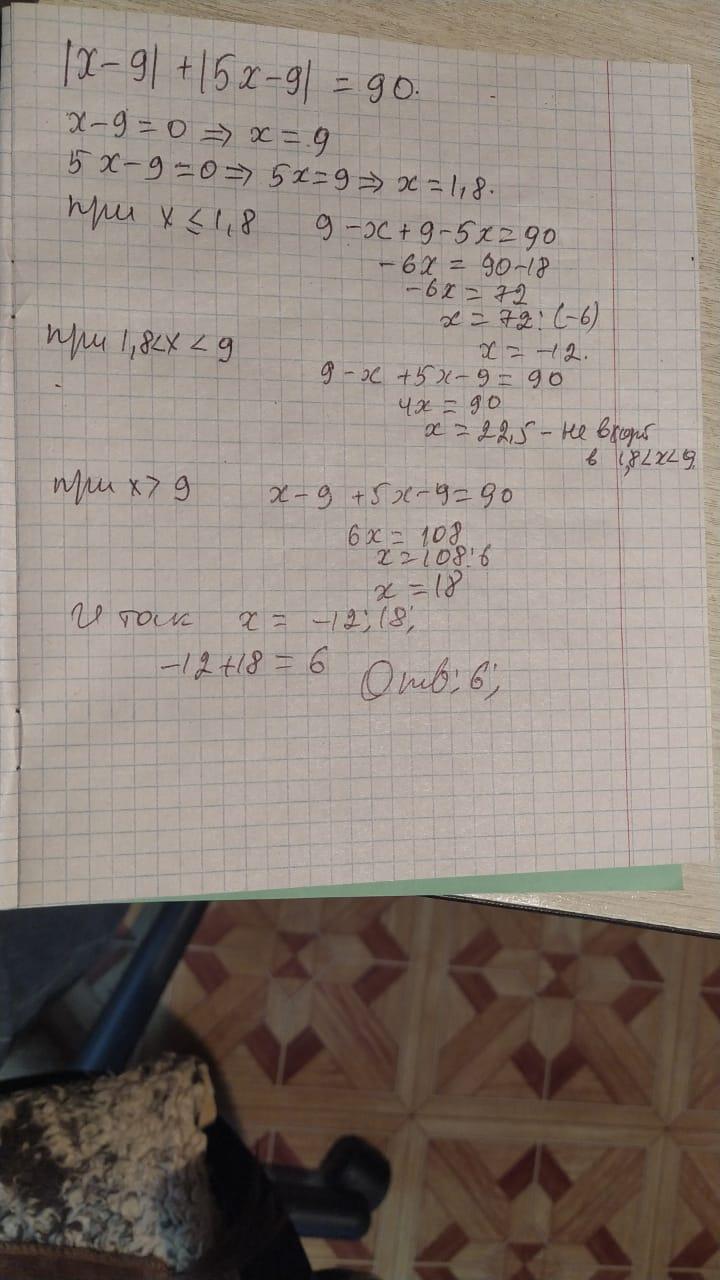 |x-9|+|5x-9| = 90.
x-9=0 ⇒ x=9
5x-9=0 ⇒ 5x=9 ⇒ x=1,8.
при x≤1,8 9-x+9-5x=90
-6x = 90-18
-6x = 72
x = 72:(-6)
x = -12.
при 1,8<x<9
9-x+5x-9=90
4x=90
x=22,5 - не входит
в 1,8<x<9
при x>9 x-9+5x-9=90
6x=108
x=108:6
x=18
Итак x = -12; 18;
-12+18=6 Отв: 6;